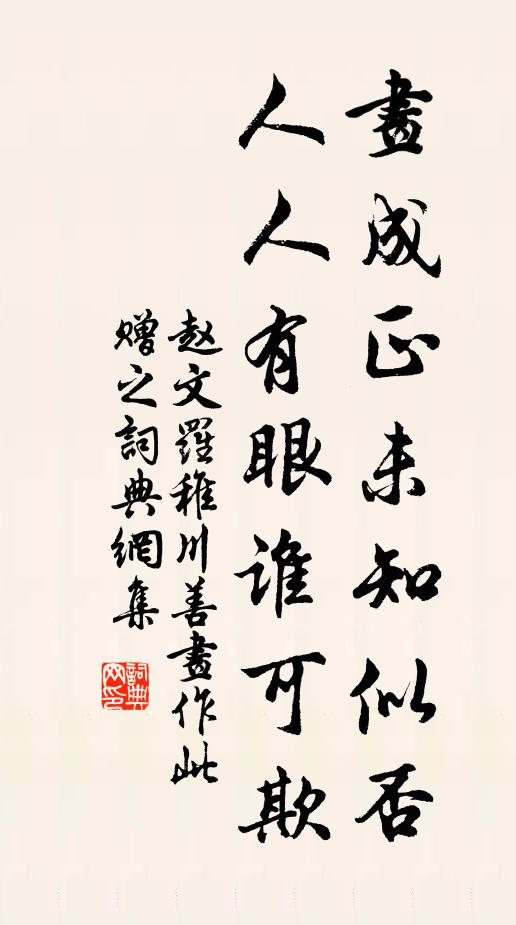 畫成正未知似否
人人有眼谁可欺
赵文羅稚川善畫作此
赠之詞典網集
詞典网印